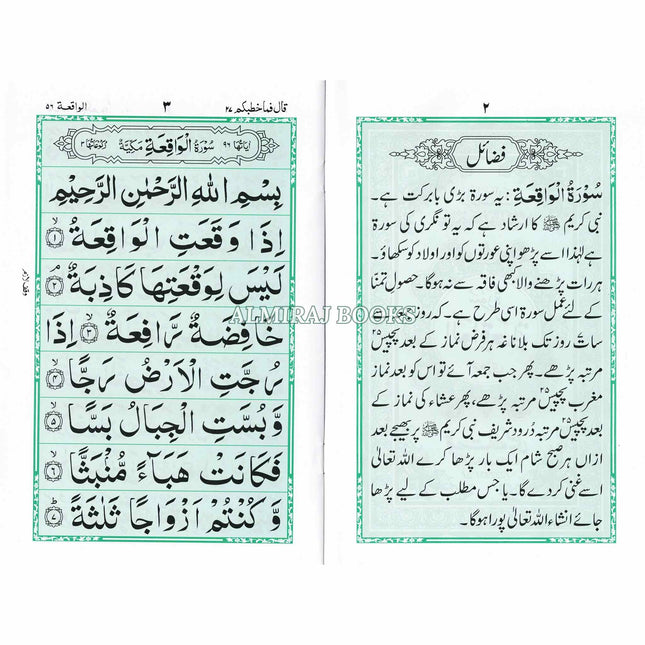 ٢
فضائل
سُوْرَةُ الْوَاقِعَةِ: یہ سورۃ بڑی بابرکت ہے۔
نبی کریم ﷺ کا ارشاد ہے کہ یہ تونگری کی سورۃ
ہے لہٰذا اسے پڑھو اپنی عورتوں کو اور اولاد کو سکھاؤ۔
ہر رات پڑھنے والا کبھی فاقہ سے نہ ہوگا۔ حصول تمنا
کے لئے عمل سورۃ اسی طرح ہے۔ کہ روز
سات روز تک بلا ناغہ ہر فرض نماز کے بعد پچیس ٢٥
مرتبہ پڑھے۔ پھر جب جمعہ آئے تو اس کو بعد نماز
مغرب پچیس ٢٥ مرتبہ پڑھے، پھر عشاء کی نماز کے
بعد پچیس ٢٥ مرتبہ دُرود شریف نبی کریم ﷺ پر بھیجے بعد
ازاں ہر صبح شام ایک بار پڑھا کرے اللہ تعالی
اسے غنی کر دے گا۔ یا جس مطلب کے لیے پڑھا
جائے انشاء اللہ تعالیٰ پورا ہوگا۔
قال فما خطبکم ٢٧
٣
الواقعة ٥٦
اٰيَاتُهَا ٩٦
سُوْرَةُ الْوَاقِعَةِ مَكِّيَّةٌ
رُكُوْعَاتُهَا ٣
بِسْمِ اللّٰهِ الرَّحْمٰنِ الرَّحِيْمِ
اِذَا وَقَعَتِ الْوَاقِعَةُ ۙ ١
لَيْسَ لِوَقْعَتِهَا كَاذِبَةٌ ۘ ٢
خَافِضَةٌ رَّافِعَةٌ ۙ ٣ اِذَا
رُجَّتِ الْاَرْضُ رَجًّا ۙ ٤
وَّبُسَّتِ الْجِبَالُ بَسًّا ۙ ٥
فَكَانَتْ هَبَآءً مُّنْۢبَثًّا ۙ ٦
وَّكُنْتُمْ اَزْوَاجًا ثَلٰثَةً ؕ ٧
ALMIRAJ BOOKS